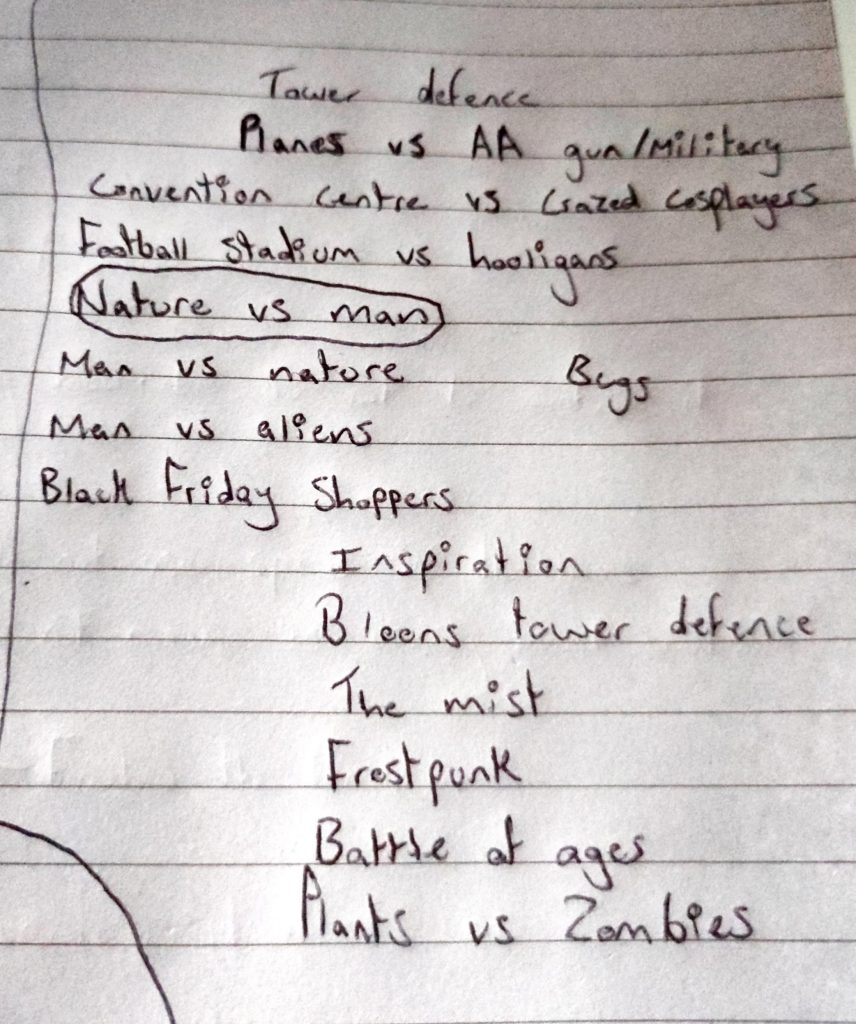 Tower defence
Planes vs AA gun/Military
Convention Centre vs Crazed Cosplayers
Football Stadium vs hooligans
Nature vs man
Man vs nature Bugs
Man vs aliens
Black Friday Shoppers
Inspiration
Bloons tower defence
The mist
Frostpunk
Battle of ages
Plants vs Zombies